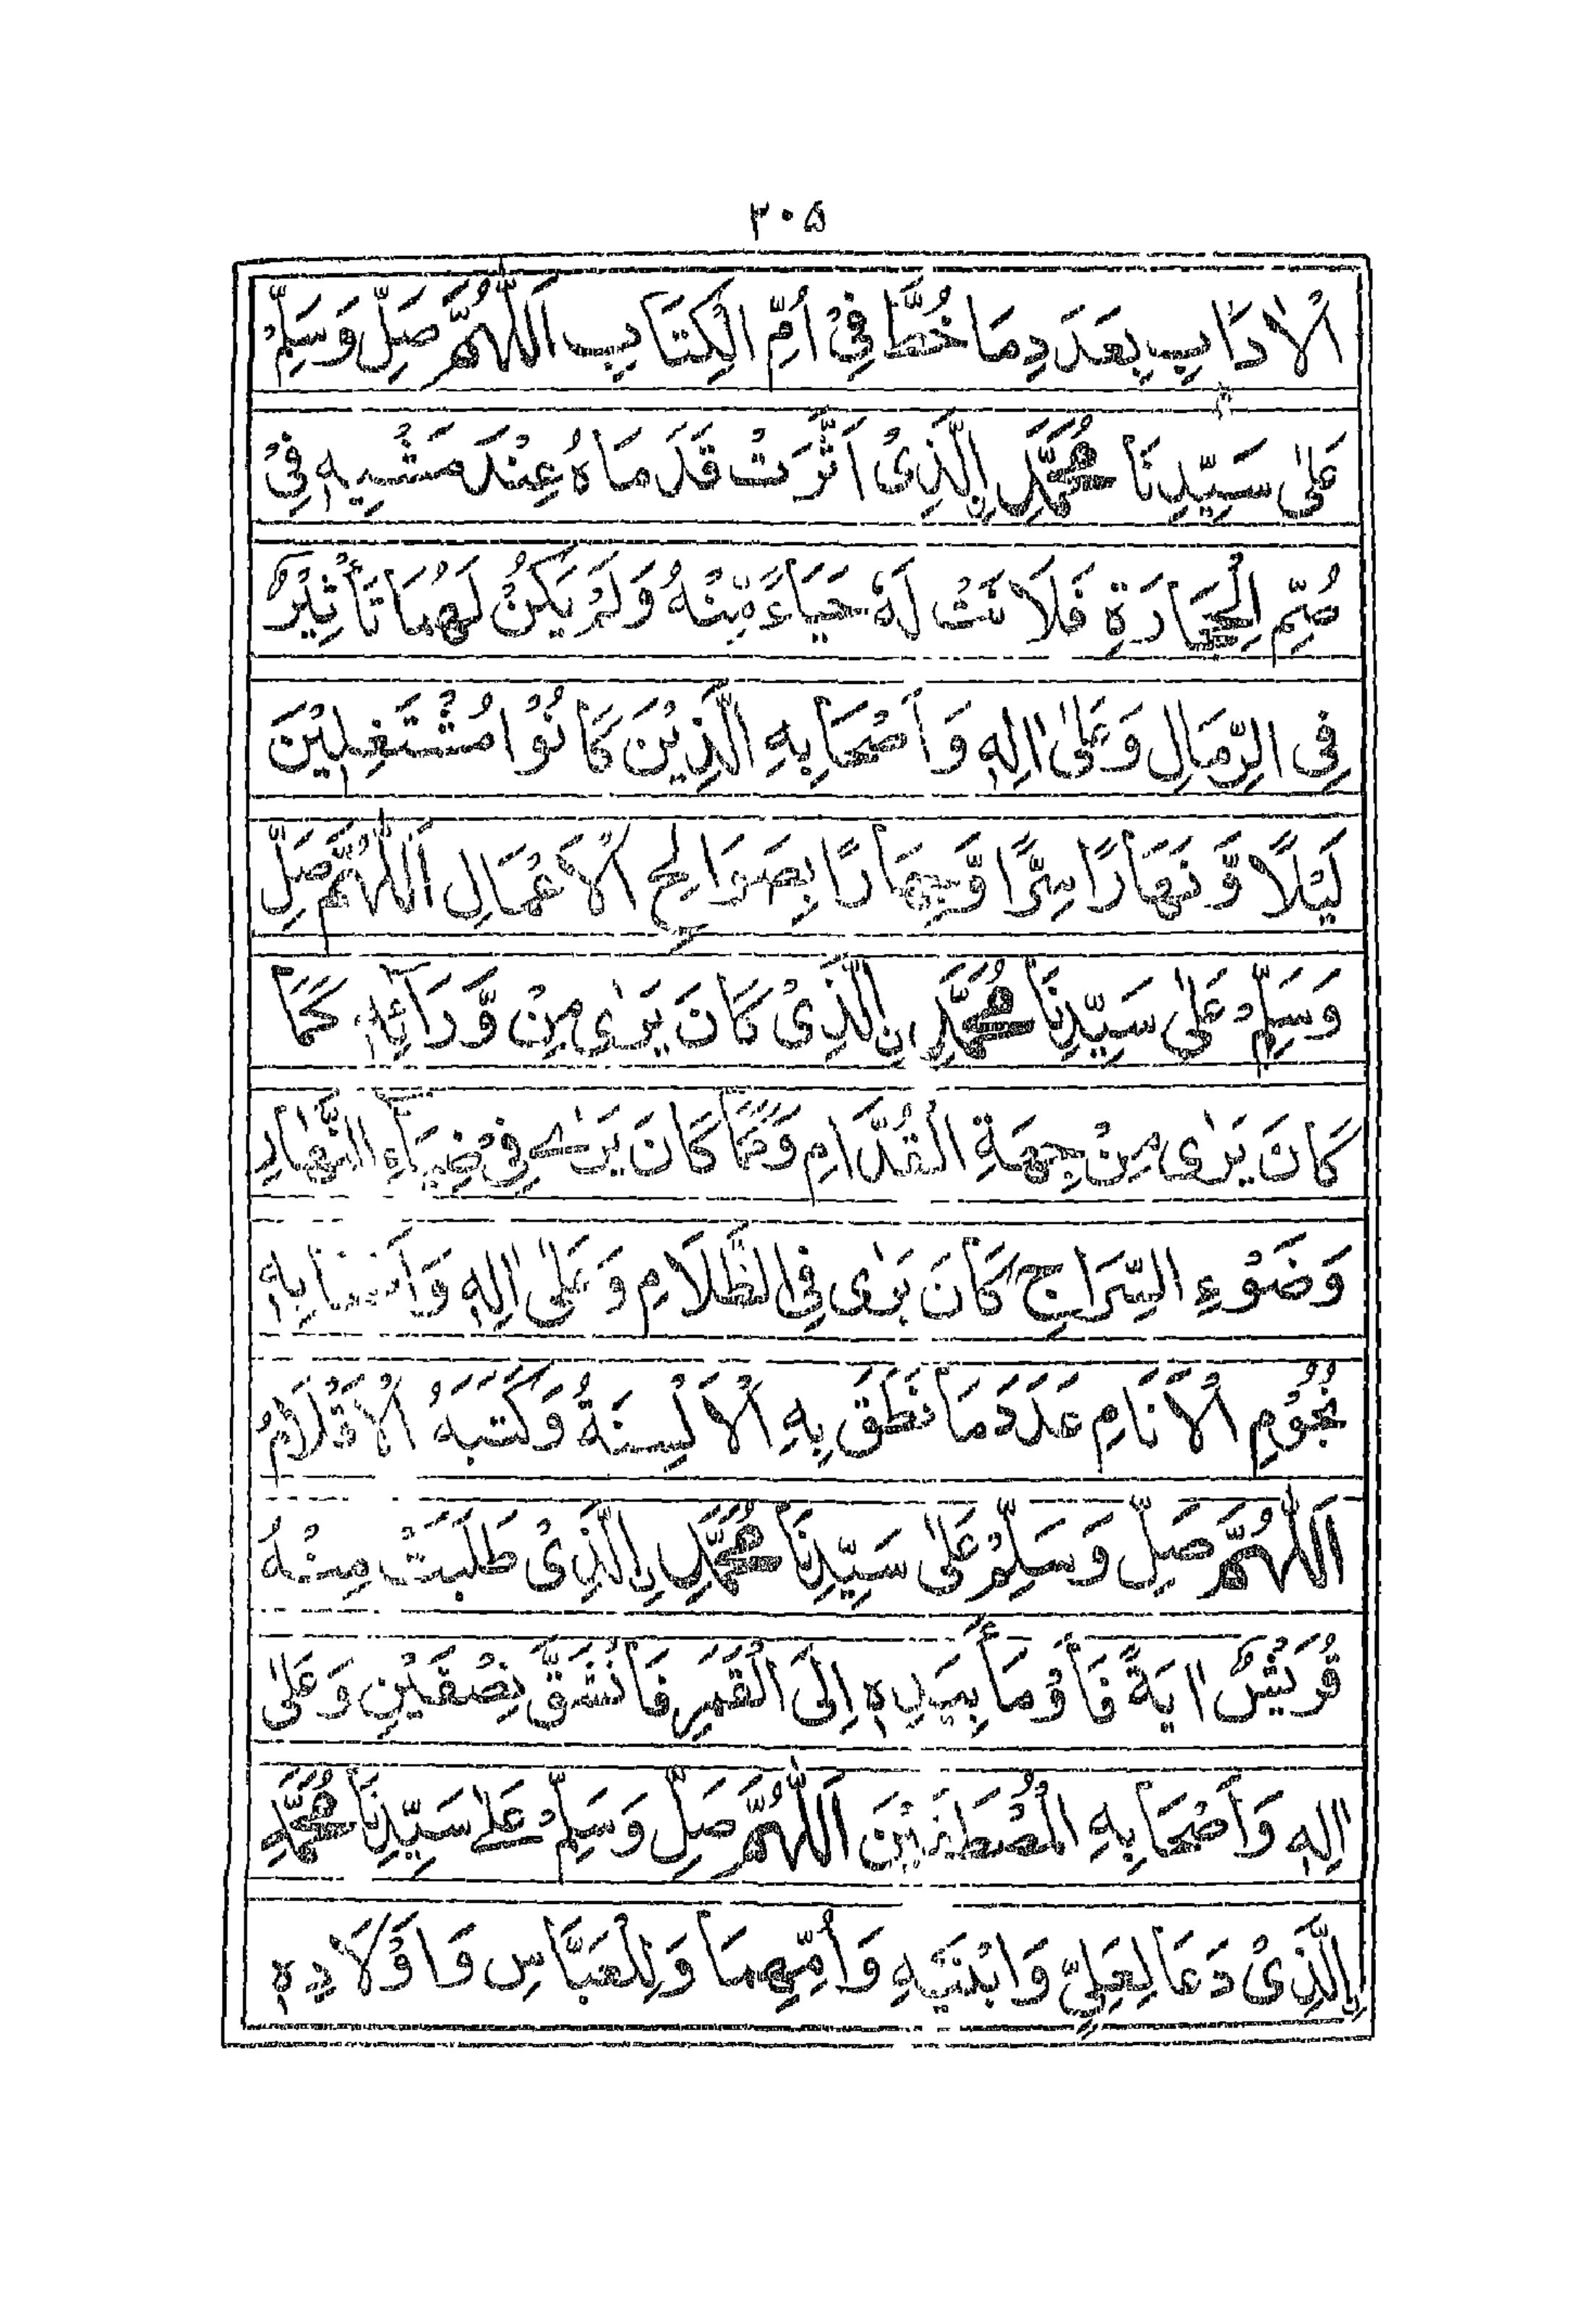 ٣٠٥
الْاٰدَابِ بِعَدَدِ مَا خُطَّ فِیْ اُمِّ الْكِتَابِ اَللّٰهُمَّ صَلِّ وَسَلِّمْ
عَلٰى سَيِّدِنَا مُحَمَّدِ نِ الَّذِیْ اَثَّرَتْ قَدَمَاهُ عِنْدَ مَشْيِهٖ فِیْ
صُمِّ الْحِجَارَةِ فَلَانَتْ لَهٗ حَيَاءً مِّنْهُ وَلَمْ يَكُنْ لَهُمَا تَأْثِيْرٌ
فِی الرِّمَالِ وَعَلٰۤى اٰلِهٖ وَاَصْحَابِهِ الَّذِيْنَ كَانُوْا مُشْتَغِلِيْنَ
لَيْلًا وَّنَهَارًا سِرًّا وَّجِهَارًا بِصَوَالِحِ الْاَعْمَالِ اَللّٰهُمَّ صَلِّ
وَسَلِّمْ عَلٰى سَيِّدِنَا مُحَمَّدِ نِ الَّذِیْ كَانَ يَرٰى مِنْ وَّرَآئِهٖ كَمَا
كَانَ يَرٰى مِنْ جِهَةِ الْقُدَّامِ وَكَمَا كَانَ يَرٰے فِیْ ضِيَآءِ النَّهَارِ
وَضَوْءِ السِّرَاجِ كَانَ يَرٰى فِی الظَّلَامِ وَعَلٰۤى اٰلِهٖ وَاَصْحَابِهٖ
نُجُوْمِ الْاَنَامِ عَدَدَ مَا نَطَقَ بِهِ الْاَلْسِنَةُ وَكَتَبَهُ الْاَقْلَامُ
اَللّٰهُمَّ صَلِّ وَسَلِّمْ عَلٰى سَيِّدِنَا مُحَمَّدِ نِ الَّذِیْ طَلَبَتْ مِنْهُ
قُرَيْشٌ اٰيَةً فَاَوْمَأَ بِيَدِهٖ اِلَى الْقَمَرِ فَانْشَقَّ نِصْفَيْنِ وَعَلٰۤى
اٰلِهٖ وَاَصْحَابِهِ الْمُصْطَفَيْنَ اَللّٰهُمَّ صَلِّ وَسَلِّمْ عَلٰے سَيِّدِنَا مُحَمَّدِ
نِ الَّذِیْ دَعَا لِعَلِیٍّ وَابْنَيْهِ وَاُمِّهِمَا وَلِلْعَبَّاسِ وَاَوْلَادِهٖ